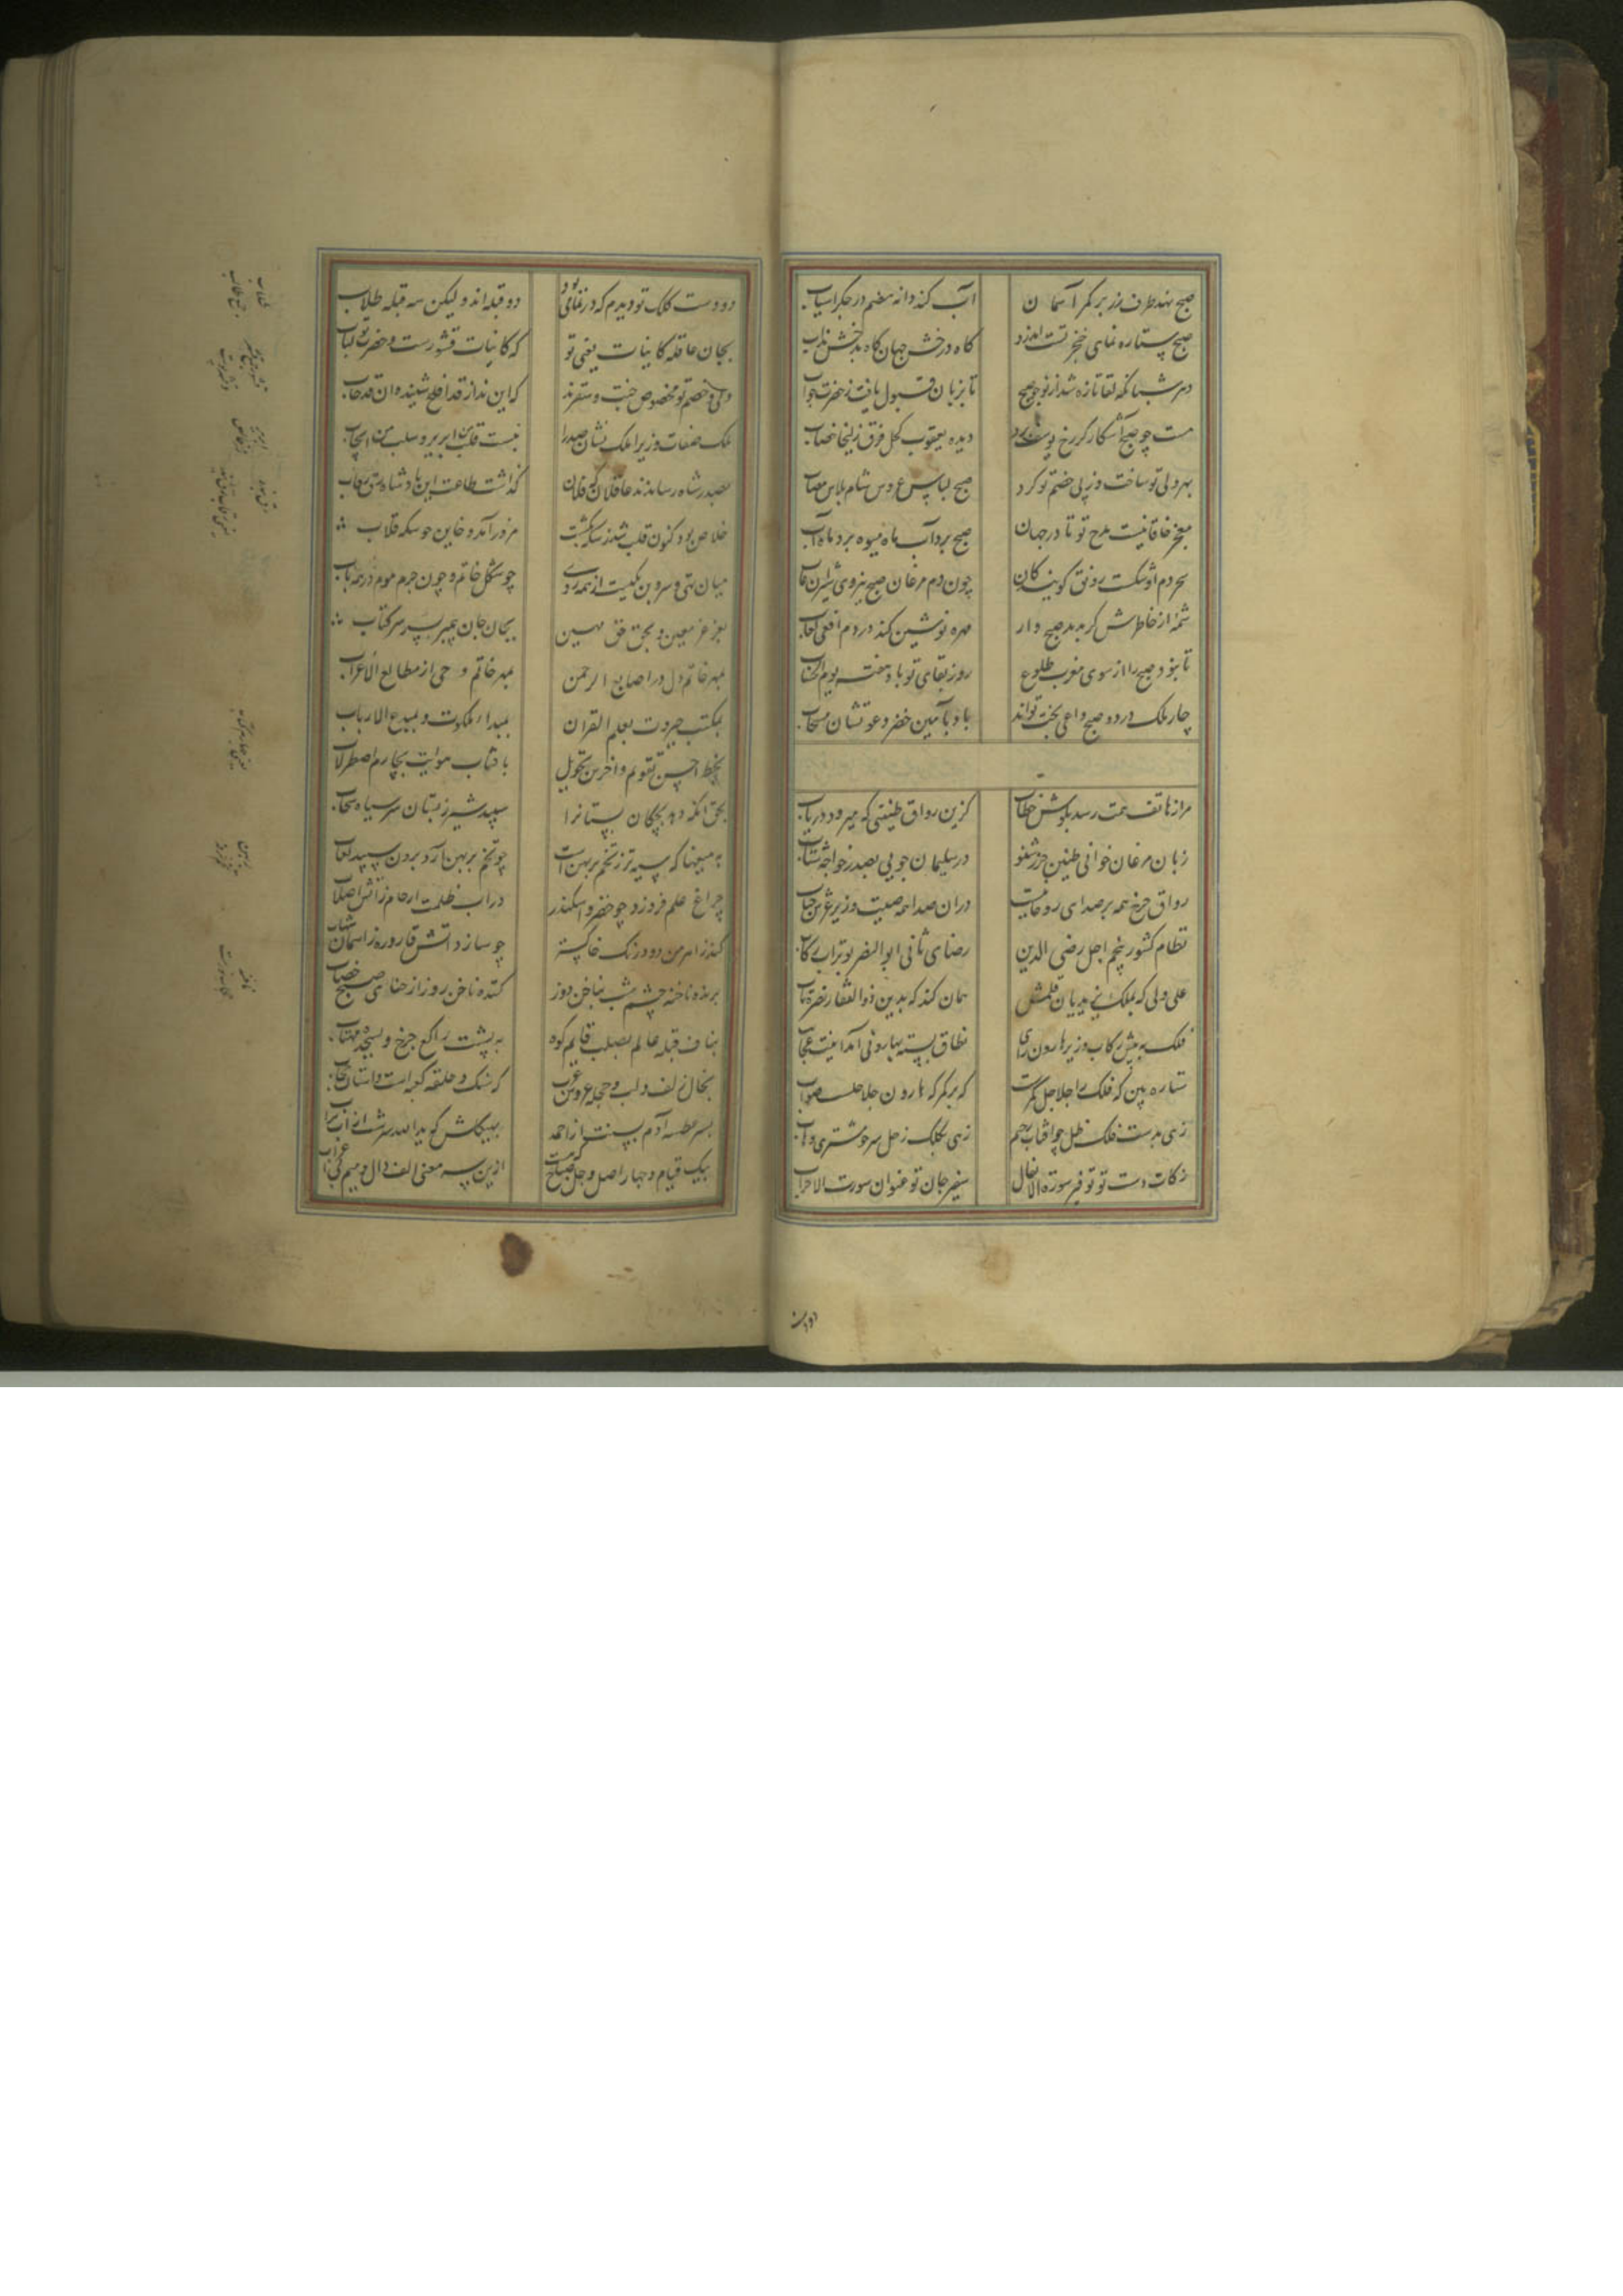 صبح نهد طرف زر بر کمر آسمان آب کند دانه هضم در جگر آسیاب
صبح ستاره نمای خنجر تست اندرو گاه درخش جهان گاه بدخش مذاب
دهر شبانگه لقا تازه شد از تو چو صبح تا بزبان قبول یافت ز حضرت جواب
هست چو صبح آشکار کز رخ یوسف برد دیده یعقوب کحل فرق زلیخا خضاب
بهر ولی تو ساخت وز پی خصم تو کرد صبح لباس عروس شام پلاس مصاب
معجز خاقانیست مدح تو تا در جهان صبح برد آب ماه میوه برد ماه آب
سحر دم او شکست رونق گویندگان چون دم مرغان صبح نیروی شیران غاب
شمه از خاطرش گر بدمد صبح وار مهره نوشین کند در دم افعی لعاب
تا نبود صبح را از سوی مغرب طلوع روز بقای تو باد هفته یوم الحساب
چار ملک در دو صبح داعی بخت تواند باد بآمین خضر دعوتشان مستجاب
مرا ز هاتف همت رسد بگوش خطاب کزین رواق طنینی که میرود دریاب
زبان مرغان خواهی طنین چرخ شنو در سلیمان جویی بصدر خواجه شتاب
رواق چرخ همه پر صدای روحانیست در آن صدا همه صیت وزیر عرش جناب
نظام کشور پنجم اجل رضی الدین رضای ثانی ابوالنصر بوتراب رکاب
علی ولی که بملک یزیدیان قلمش همان کند که بدین ذوالفقار نصرت یاب
فلک به پیش رکاب وزیر هارون رای نطاق بسته بهارونی آمد اینت عجاب
ستاره بین که فلک را جلاجل کمرست که بر کمر که هارون جلاجلست صواب
زهی بدست فلک ظل چو آفتاب رحیم زهی بکلک زحل سر چو مشتری وهاب
زکات دست تو توفیر سورة الانفال سفیر جان تو عنوان سورت الاحزاب
دو دست کلک تو دیدم که در نمای بود دو قبله اند ولیکن سه قبله طلاب
بجان عاقله کاینات یعنی تو که کاینات قشورست و حضرت تو لباب
ولی و خصم تو مخصوص جنت و سقرند که این ندا ز قد افلح شنید و آن قد خاب
ملک صفات وزیرا ملک نشان صدرا
بصدر شاه رساندند عاقلان که فلان گذاشت طاعت این پادشاه بی رقاب
خلاص بود کنون قلب شد ز سکه بگشت مزور آمد و خاین چو سکه قلاب
میان تهی و سر و بن یکیست از همه روی چو شکل خاتم و چون جرم موم در همه باب
بعز عز معین و بحق حق مبین بجان جان پیمبر بسر سر کتاب
بمهر خاتم دل در اصابع الرحمن بمهر خاتم وحی از مطالع الاعراب
بمکتب جبروت بعلم القرآن بمبداء ملکوت و بمبدع الارباب
بخط احسن تقویم و آخرین تحویل بآفتاب هویت بچارم اصطرلاب
بحق آنکه دهد بچگان بستانرا سپید شیر ز پستان سر سیاه سحاب
چراغ علم فروزد چو خضر و اسکندر در آب ظلمت ارحام ز آتش اصلاب
چو سازد آتش قاروره ز آسمان شهاب
برنده ناخنه چشم شب بناخن روز کننده ناخن روز از حنای صبح خضاب
بناف قبله عالم بصلب قایم کوه به پشت راکع چرخ و بسجده مهتاب
بخال و زلف و لب و حجله عروس عرب که سنگ و حلقه کعبه است و آستان و حجاب
بسر عطسه آدم بسنت از احمد